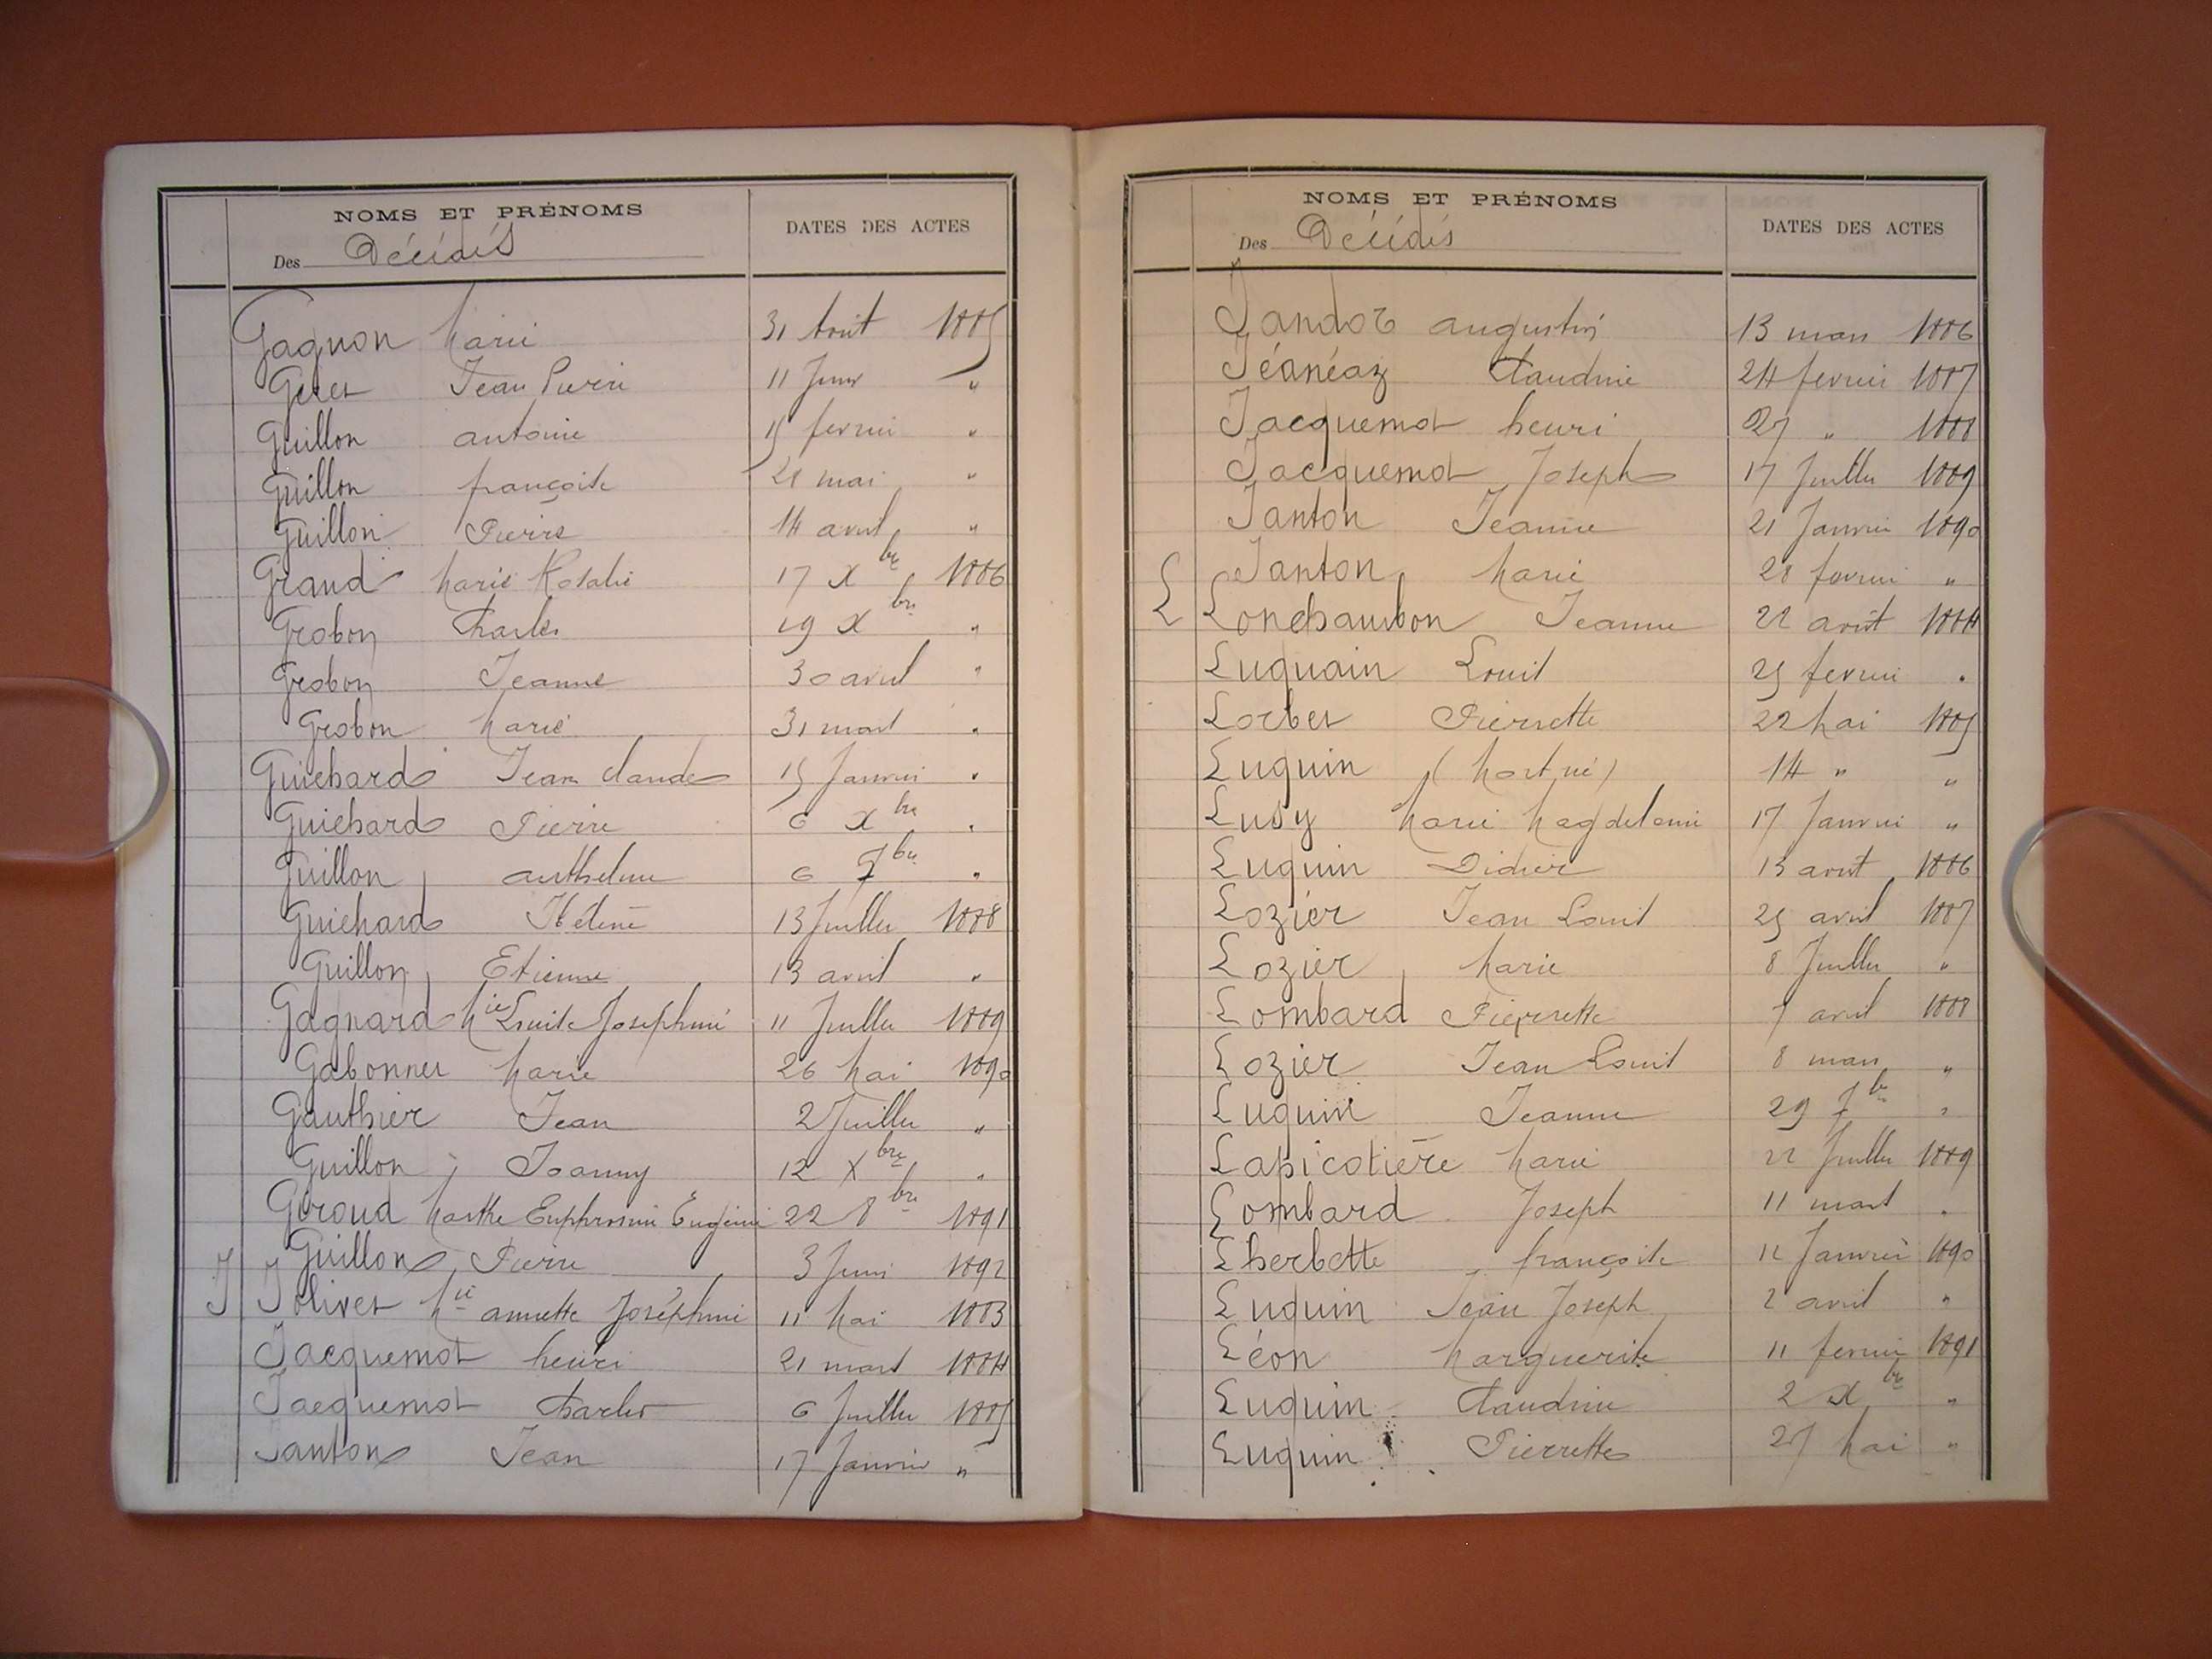 NOMS ET PRÉNOMS
Des Décédés
DATES DES ACTES
Gagnon Marie 31 Aout 1885
Geret Jean Pierre 11 Juin "
Guillon antoine 15 fevrier "
Guillon françoise 28 mai "
Guillon Pierre 14 avril "
Grand Marie Rosalie 17 Xbre 1886
Grobon Charles 19 Xbre "
Grobon Jeanne 30 avril "
Grobon Marie 31 mars "
Guichard Jean Claude 15 Janvier "
Guichard Pierre 6 Xbre "
Guillon anthelme 6 7bre "
Guichard Hélène 13 Juillet 1888
Guillon Etienne 13 avril "
Gagnard Mie Louise Josephine 11 Juillet 1889
Gabonnet Marie 26 Mai 1890
Gauthier Jean 2 Juillet "
Guillon Joanny 12 Xbre "
Giroud Marthe Euphrosine Eugénie 22 8bre 1891
Guillon Pierre 3 Juin 1892
J Jolivet Mie annette Joséphine 11 Mai 1883
Jacquemot henri 21 mars 1884
Jacquemot Charles 6 Juillet 1885
Janton Jean 17 Janvier "
NOMS ET PRÉNOMS
Des Décédés
DATES DES ACTES
Jandot augustin 13 mars 1886
Jéanéaz Claudine 24 fevrier 1887
Jacquemot henri 27 " 1888
Jacquemot Joseph 17 Juillet 1889
Janton Jeanne 21 Janvier 1890
Janton Marie 28 fevrier "
L Lonchambon Jeanne 22 août 1884
Luquain Louis 25 fevrier "
Lorbet Pierrette 22 Mai 1885
Luquin (Mort né) 14 " "
Luoy Marie Magdeleine 17 Janvier "
Luquin Didier 13 août 1886
Lozier Jean Louis 25 avril 1887
Lozier Marie 8 Juillet "
Lombard Pierrette 7 avril 1888
Lozier Jean Louis 8 mars "
Luquin Jeanne 29 7bre "
Lapicotière Marie 22 Juillet 1889
Lombard Joseph 11 mars "
Lherbette françoise 12 Janvier 1890
Luquin Jean Joseph 2 avril "
Léon Marguerite 11 fevrier 1891
Luquin Claudine 2 Xbre "
Luquin Pierrette 27 Mai "